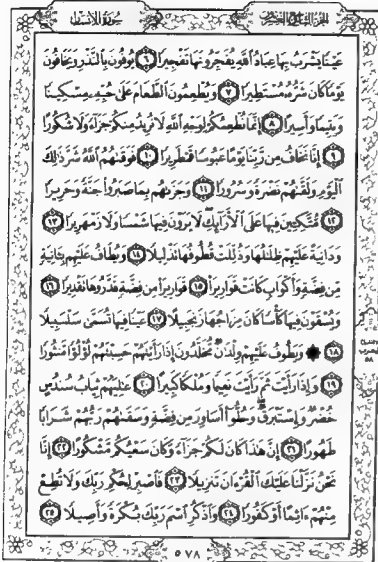 الجزء التاسع والعشرون سورة الإنسان
عَيْنًا يَشْرَبُ بِهَا عِبَادُ ٱللَّهِ يُفَجِّرُونَهَا تَفْجِيرًا ٦ يُوفُونَ بِٱلنَّذْرِ وَيَخَافُونَ
يَوْمًا كَانَ شَرُّهُۥ مُسْتَطِيرًا ٧ وَيُطْعِمُونَ ٱلطَّعَامَ عَلَىٰ حُبِّهِۦ مِسْكِينًا
وَيَتِيمًا وَأَسِيرًا ٨ إِنَّمَا نُطْعِمُكُمْ لِوَجْهِ ٱللَّهِ لَا نُرِيدُ مِنكُمْ جَزَآءً وَلَا شُكُورًا
٩ إِنَّا نَخَافُ مِن رَّبِّنَا يَوْمًا عَبُوسًا قَمْطَرِيرًا ١٠ فَوَقَىٰهُمُ ٱللَّهُ شَرَّ ذَٰلِكَ
ٱلْيَوْمِ وَلَقَّىٰهُمْ نَضْرَةً وَسُرُورًا ١١ وَجَزَىٰهُم بِمَا صَبَرُوا۟ جَنَّةً وَحَرِيرًا
١٢ مُّتَّكِـِٔينَ فِيهَا عَلَى ٱلْأَرَآئِكِ ۖ لَا يَرَوْنَ فِيهَا شَمْسًا وَلَا زَمْهَرِيرًا ١٣
وَدَانِيَةً عَلَيْهِمْ ظِلَٰلُهَا وَذُلِّلَتْ قُطُوفُهَا تَذْلِيلًا ١٤ وَيُطَافُ عَلَيْهِم بِـَٔانِيَةٍ
مِّن فِضَّةٍ وَأَكْوَابٍ كَانَتْ قَوَارِيرَا۠ ١٥ قَوَارِيرَا۟ مِن فِضَّةٍ قَدَّرُوهَا تَقْدِيرًا ١٦
وَيُسْقَوْنَ فِيهَا كَأْسًا كَانَ مِزَاجُهَا زَنجَبِيلًا ١٧ عَيْنًا فِيهَا تُسَمَّىٰ سَلْسَبِيلًا
١٨ ۞ وَيَطُوفُ عَلَيْهِمْ وِلْدَٰنٌ مُّخَلَّدُونَ إِذَا رَأَيْتَهُمْ حَسِبْتَهُمْ لُؤْلُؤًا مَّنثُورًا
١٩ وَإِذَا رَأَيْتَ ثَمَّ رَأَيْتَ نَعِيمًا وَمُلْكًا كَبِيرًا ٢٠ عَٰلِيَهُمْ ثِيَابُ سُندُسٍ
خُضْرٌ وَإِسْتَبْرَقٌ ۖ وَحُلُّوٓا۟ أَسَاوِرَ مِن فِضَّةٍ وَسَقَىٰهُمْ رَبُّهُمْ شَرَابًا
طَهُورًا ٢١ إِنَّ هَٰذَا كَانَ لَكُمْ جَزَآءً وَكَانَ سَعْيُكُم مَّشْكُورًا ٢٢ إِنَّا
نَحْنُ نَزَّلْنَا عَلَيْكَ ٱلْقُرْءَانَ تَنزِيلًا ٢٣ فَٱصْبِرْ لِحُكْمِ رَبِّكَ وَلَا تُطِعْ
مِنْهُمْ ءَاثِمًا أَوْ كَفُورًا ٢٤ وَٱذْكُرِ ٱسْمَ رَبِّكَ بُكْرَةً وَأَصِيلًا ٢٥
٥٧٨